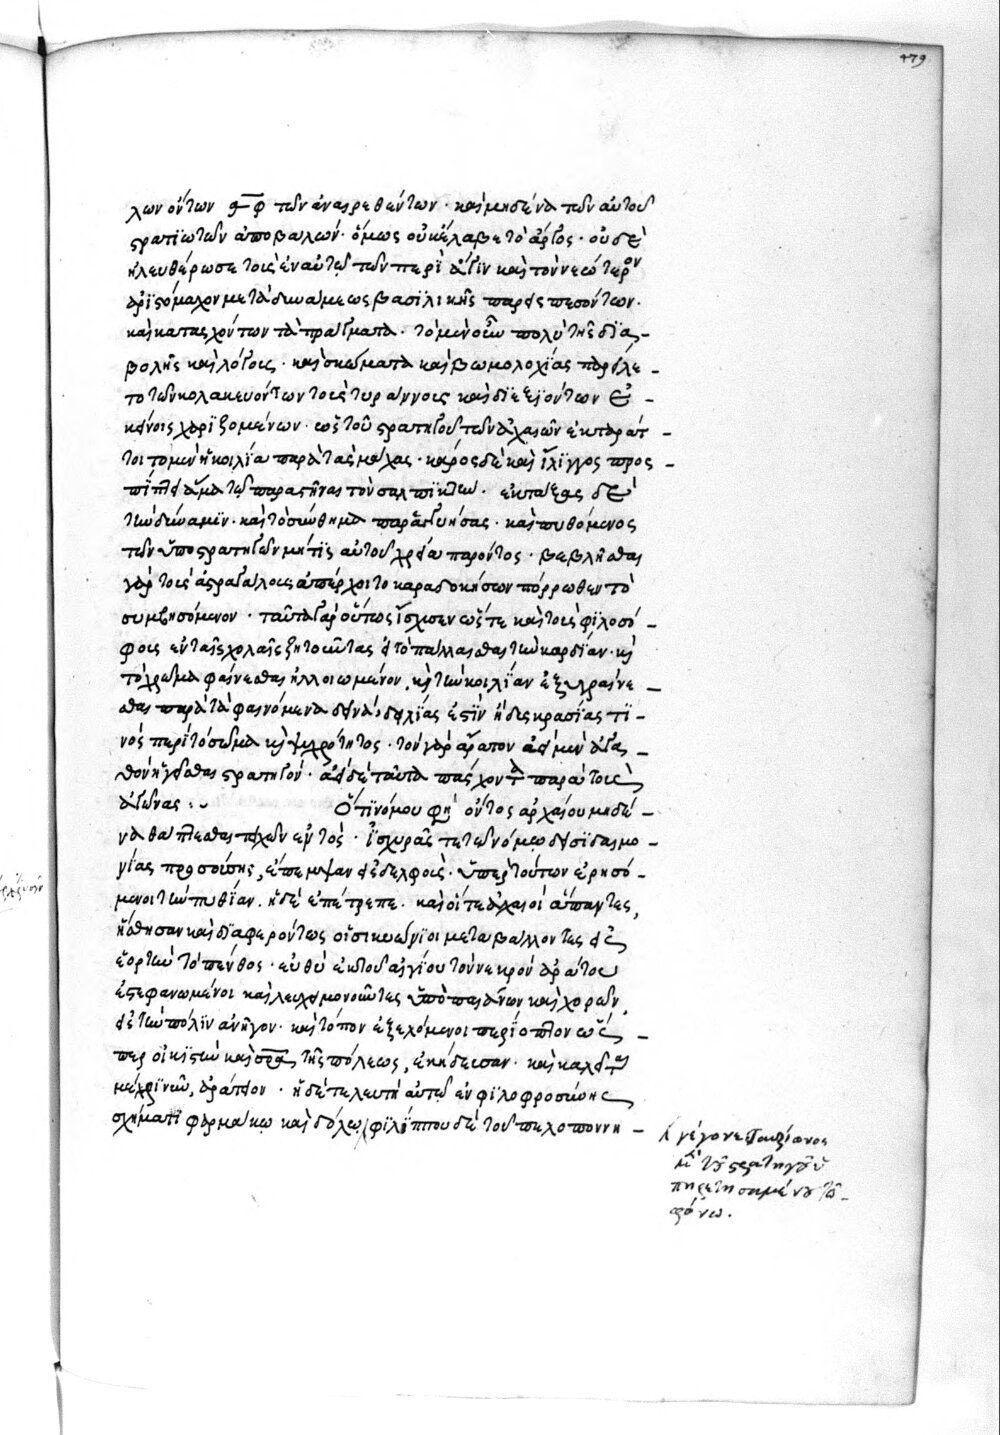 479
λων ὄντων ͵αφ τῶν ἀναιρεθέντων · καὶ μηδένα τῶν αὑτοῦ
στρατιωτῶν ἀποβαλών · ὅμως οὐκ ἔλαβε τὸ ἄργος · οὐδὲ
ἠλευθέρωσε τοὺς ἐν αὐτῷ τῶν περὶ ἆγιν καὶ τὸν νεώτερον
ἀρϊστόμαχον μετὰ δυνάμεως βασιλικῆς παρεισπεσόντων ·
καὶ κατασχόντων τὰ πράγματα · τὸ μὲν οὖν πολὺ τῆς δια-
βολῆς καὶ λόγους · καὶ σκώματα καὶ βωμολοχίας παρείλε-
το τῶν κολακευόντων τοὺς τυράννους καὶ διεξϊόντων ἐ-
κείνοις χαρϊζομένων · ὡς τοῦ στρατηγοῦ τῶν ἀχαιῶν ἐκταράτ-
τοιτο μὲν ἡ κοιλία παρὰ τὰς μάχας · κάρος δὲ καὶ ἴλϊγγος προσ-
πίπτει ἅμα τῷ παραστῆναι τὸν σαλπικτὴν · ἐκτάξας δὲ
τὴν δύναμϊν · καὶ τὸ σύνθημα παρεγγυήσας · καὶ πυθόμενος
τῶν ὑποστρατηγῶν μή τις αὐτοῦ χρεία παρόντος · βεβλῆσθαι
γὰρ τοὺς ἀστραγάλους ἀπέρχοιτο καραδοκήσων πόρρωθεν τὸ
συμβησόμενον · ταῦτα γὰρ οὕτως ἴσχυσεν ὥστε καὶ τοὺς φϊλοσό-
φους ἐν ταῖς σχολαῖς ζητοῦντας εἰ τὸ πάλλεσθαι τὴν καρδίαν · καὶ
τὸ χρῶμα φαίνεσθαι ἠλλοιωμένον, καὶ τὴν κοιλίαν ἐξυγραίνε-
σθαι παρὰ τὰ φαινόμενα δεινὰ, δειλίας ἐστὶν ἢ δυσκρασίας τϊ-
νὸς περὶ τὸ σῶμα καὶ ψυχρότητος · τὸν γὰρ ἄρατον ἀεὶ μὲν ἀγα-
θὸν ἡγεῖσθαι στρατηγόν · ἀεὶ δὲ ταῦτα πάσχοντα παρὰ τοὺς
ἀγῶνας :
Ὅτϊ νόμου φησὶ ὄντος ἀρχαίου μηδέ-
να θάπτεσθαι τειχῶν ἐντὸς · ἰσχυρᾶς τε τῷ νόμῳ δεισϊδαιμο-
νίας προσούσης, ἔπεμψαν εἰς δελφοὺς · ὑπὲρ τούτων ἐρησό-
μενοι τὴν πυθΐαν · ἡ δὲ ἐπέτρεπε · καὶ οἵ τε ἀχαιοὶ ἅπαντες,
ἥσθησαν καὶ διαφερόντως οἱ σικυώνϊοι μεταβαλλοντες εἰς
ἑορτὴν τὸ πένθος · εὐθὺ ἐκ τοῦ αἰγίου τὸν νεκρὸν ἀράτου
ἐστεφανωμένοι καὶ λευχειμονοῦντες ὑπὸ παιάνων καὶ χορῶν,
εἰς τὴν πόλϊν ἀνῆγον · καὶ τόπον ἐξελόμενοι περΐοπτον ὥσ-
περ οἰκϊστὴν καὶ σωτῆρα τῆς πόλεως, ἐκήδευσαν · καὶ καλεῖται
μέχρϊ νῦν, ἀράτειον · ἡ δὲ τελευτὴ αὐτῷ ἐν φϊλοφροσύνης
σχήματι φαρμάκῳ καὶ δόλῳ, φϊλίππου δὲ τοῦ πελοποννη-
γέγονε
τοῦ στρατηγοῦ